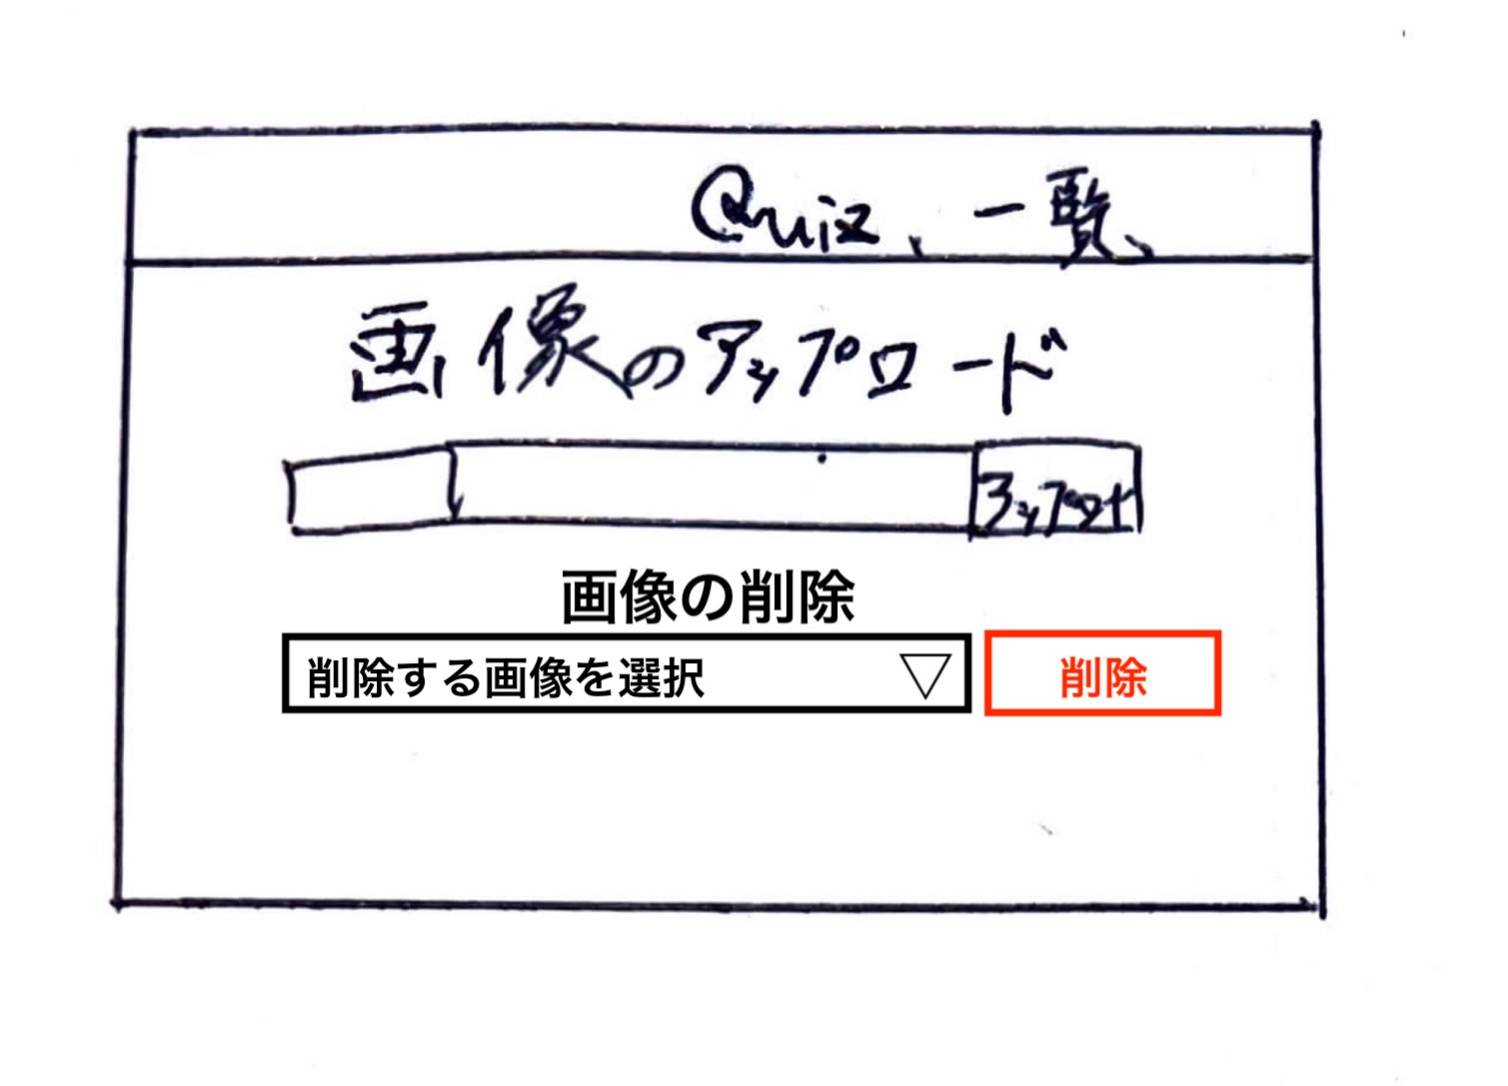 Quiz、一覧、
画像のアップロード
アップロード
画像の削除
削除する画像を選択 ▽ 削除